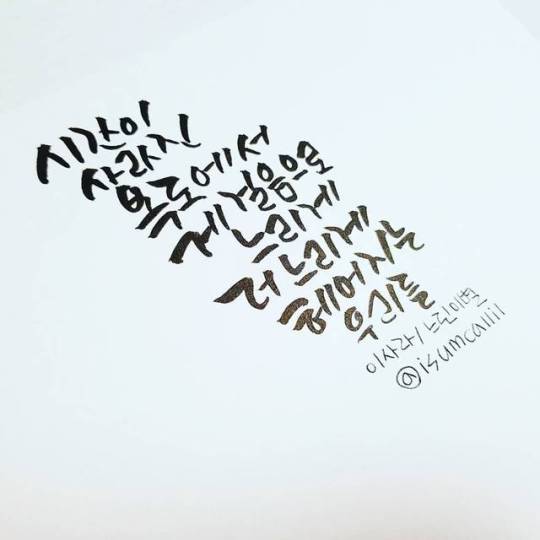 시간이
사라진
복도에서
게걸음으로
느리게
더 느리게
헤어지는
우리들
이사라/느린이별
@isumcallil